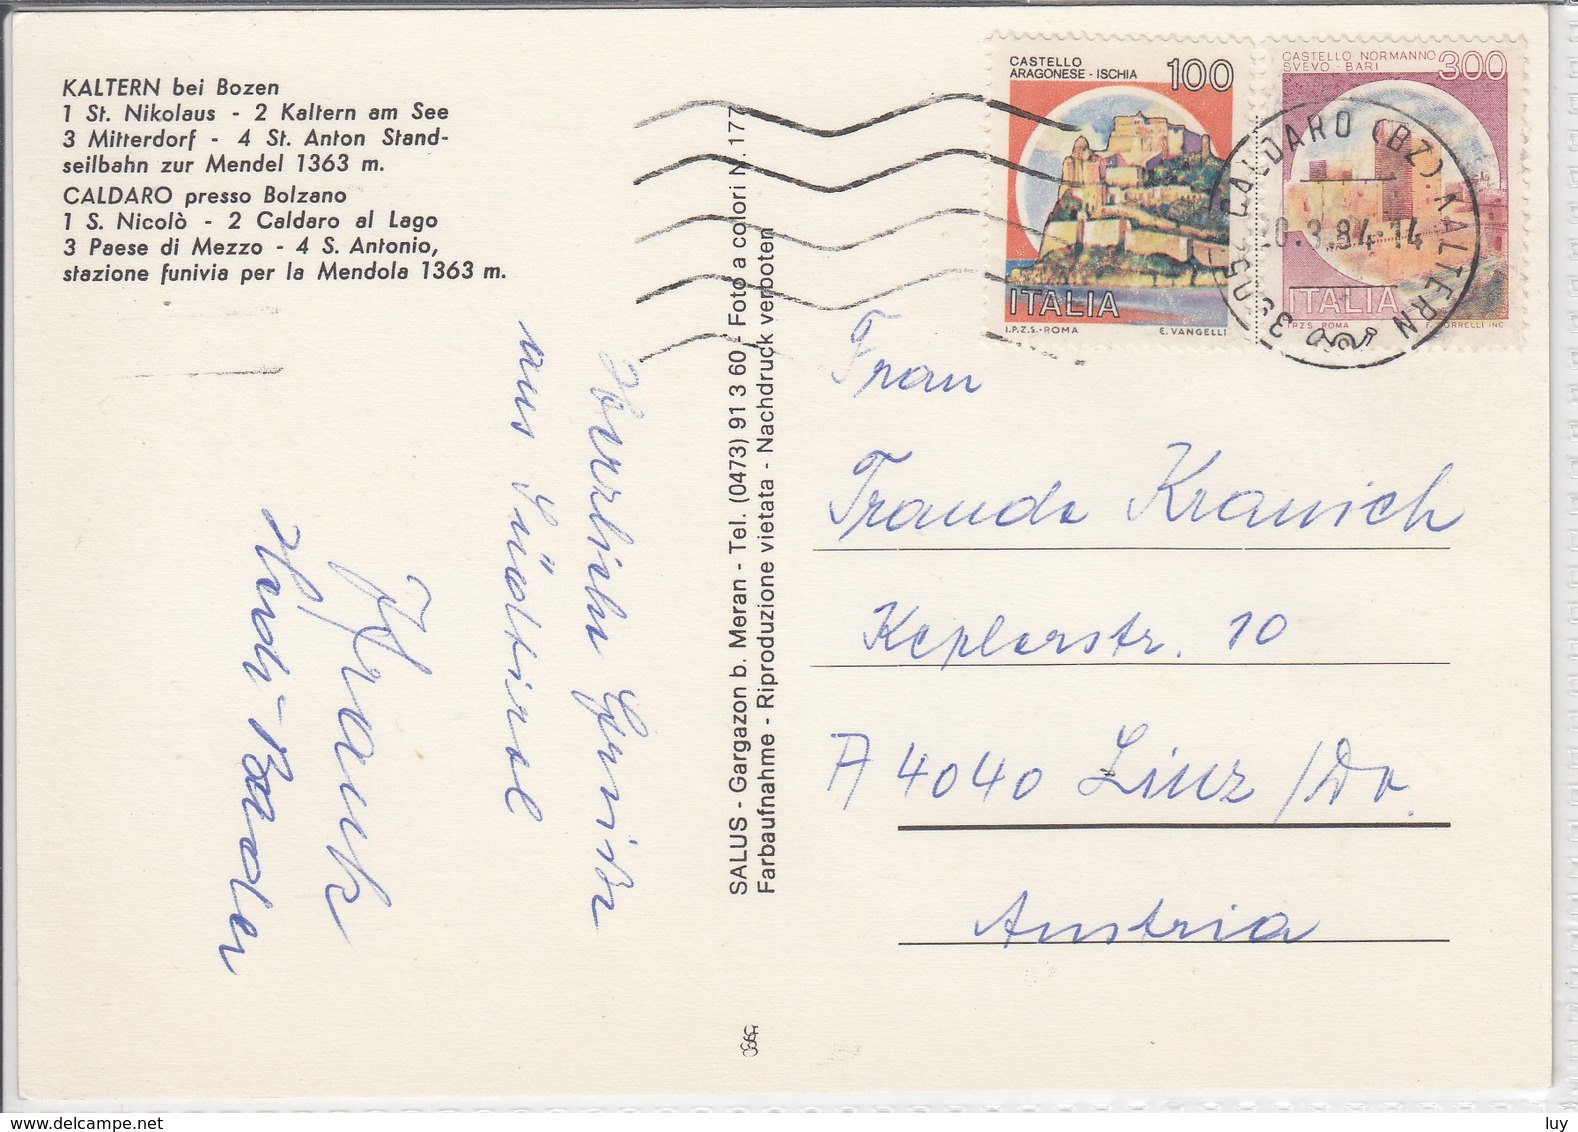 KALTERN bei Bozen
1 St. Nikolaus - 2 Kaltern am See
3 Mitterdorf - 4 St. Anton Stand-
seilbahn zur Mendel 1363 m.
CALDARO presso Bolzano
1 S. Nicolò - 2 Caldaro al Lago
3 Paese di Mezzo - 4 S. Antonio,
stazione funivia per la Mendola 1363 m.
CASTELLO
ARAGONESE - ISCHIA 100
ITALIA
I.P.Z.S.-ROMA E. VANGELLI
CASTELLO NORMANNO
SVEVO - BARI 300
ITALIA
I.P.Z.S. ROMA
39052 CALDARO (BZ) KALTERN
20.3.84-14
SALUS - Gargazon b. Meran - Tel. (0473) 91 3 60 - Foto a colori N. 177
Farbaufnahme - Riproduzione vietata - Nachdruck verboten
Herzliche Grüße
aus Südtirol
Frau
Kranich
Keplerstr. 10
A 4040 Linz/Do.
Austria
luy
www.delcampe.net